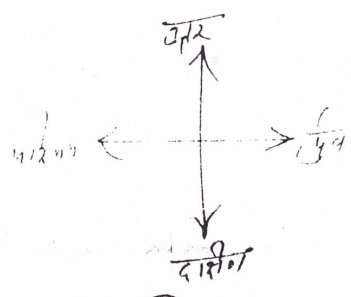 उत्तर
पश्चिम
पुर्व
दक्षीण